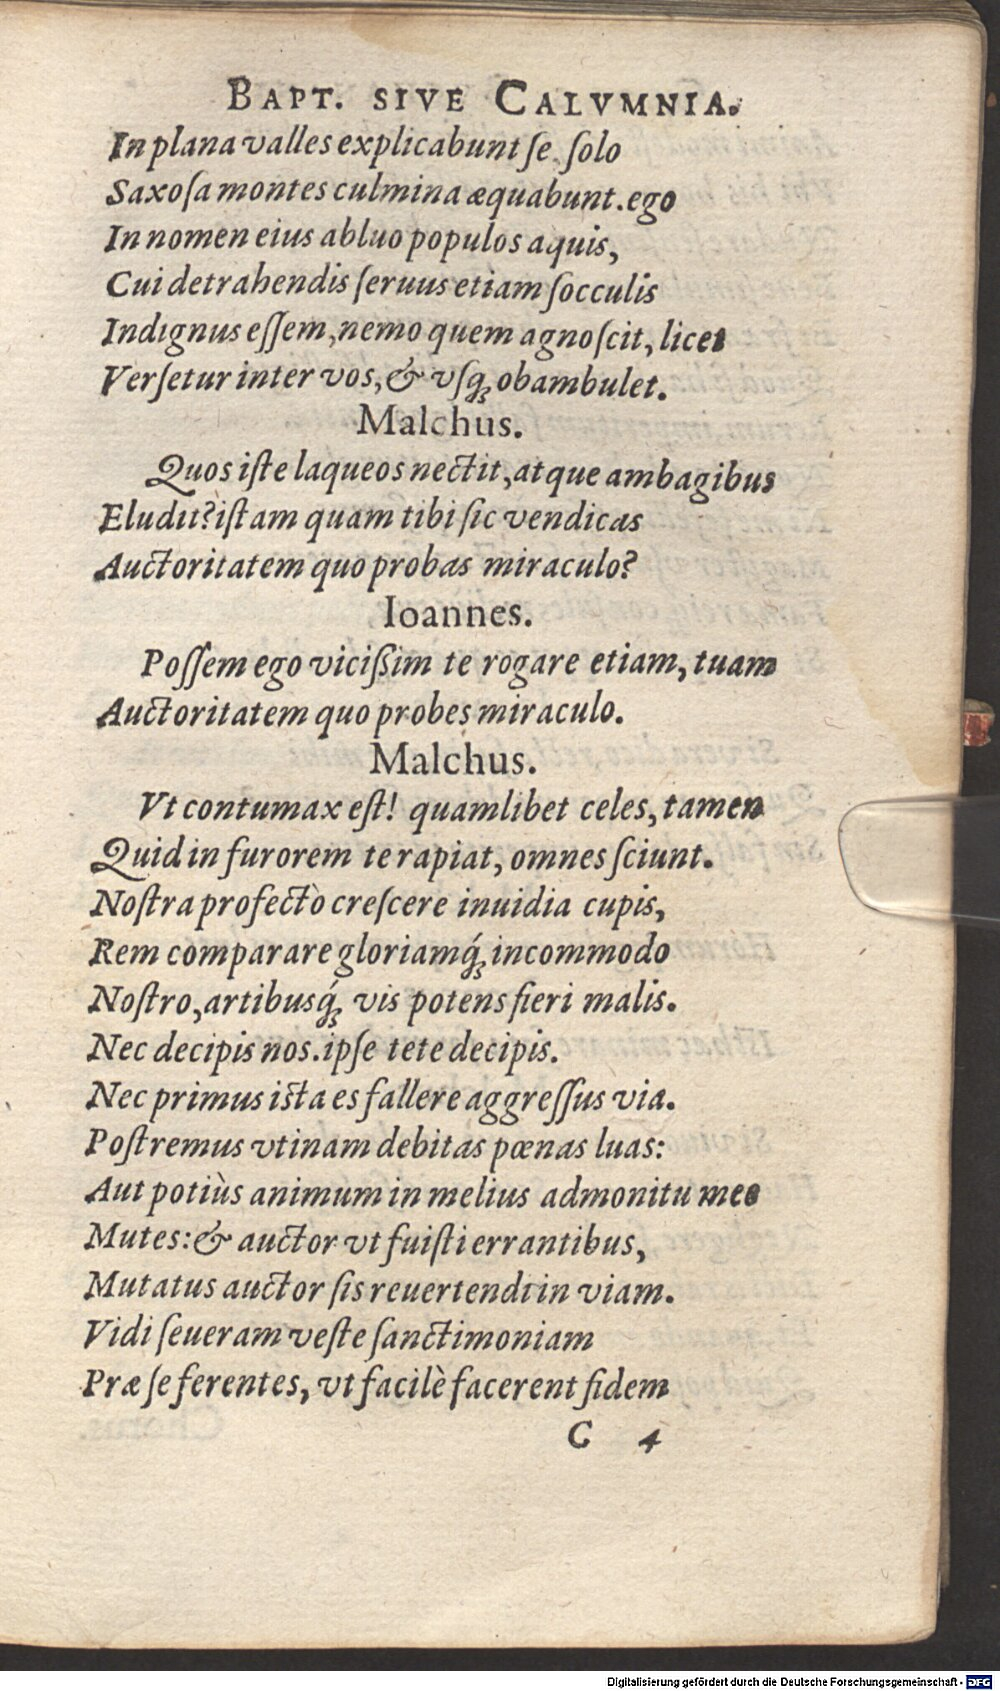 BAPT. SIVE CALVMNIA.
In plana valles explicabunt ſe ſolo
Saxoſa montes culmina æquabunt. ego
In nomen eius abluo populos aquis,
Cui detrahendis ſeruus etiam ſocculis
Indignus eſſem, nemo quem agnoſcit, licet
Verſetur inter vos, & vſq; obambulet.
Malchus.
Quos iſte laqueos nectit, atque ambagibus
Eludit? iſtam quam tibi ſic vendicas
Auctoritatem quo probas miraculo?
Ioannes.
Poſſem ego viciſſim te rogare etiam, tuam
Auctoritatem quo probes miraculo.
Malchus.
Vt contumax eſt! quamlibet celes, tamen
Quid in furorem te rapiat, omnes ſciunt.
Noſtra profectò creſcere inuidia cupis,
Rem comparare gloriamq́; incommodo
Noſtro, artibusq́; vis potens fieri malis.
Nec decipis nos. ipſe tete decipis.
Nec primus iſta es fallere aggreſſus via.
Poſtremus vtinam debitas pœnas luas:
Aut potiùs animum in melius admonitu meo
Mutes: & auctor vt fuiſti errantibus,
Mutatus auctor ſis reuertendi in viam.
Vidi ſeueram veſte ſanctimoniam
Præ ſe ferentes, vt facilè facerent fidem
C 4
Digitalisierung gefördert durch die Deutsche Forschungsgemeinschaft - DFG